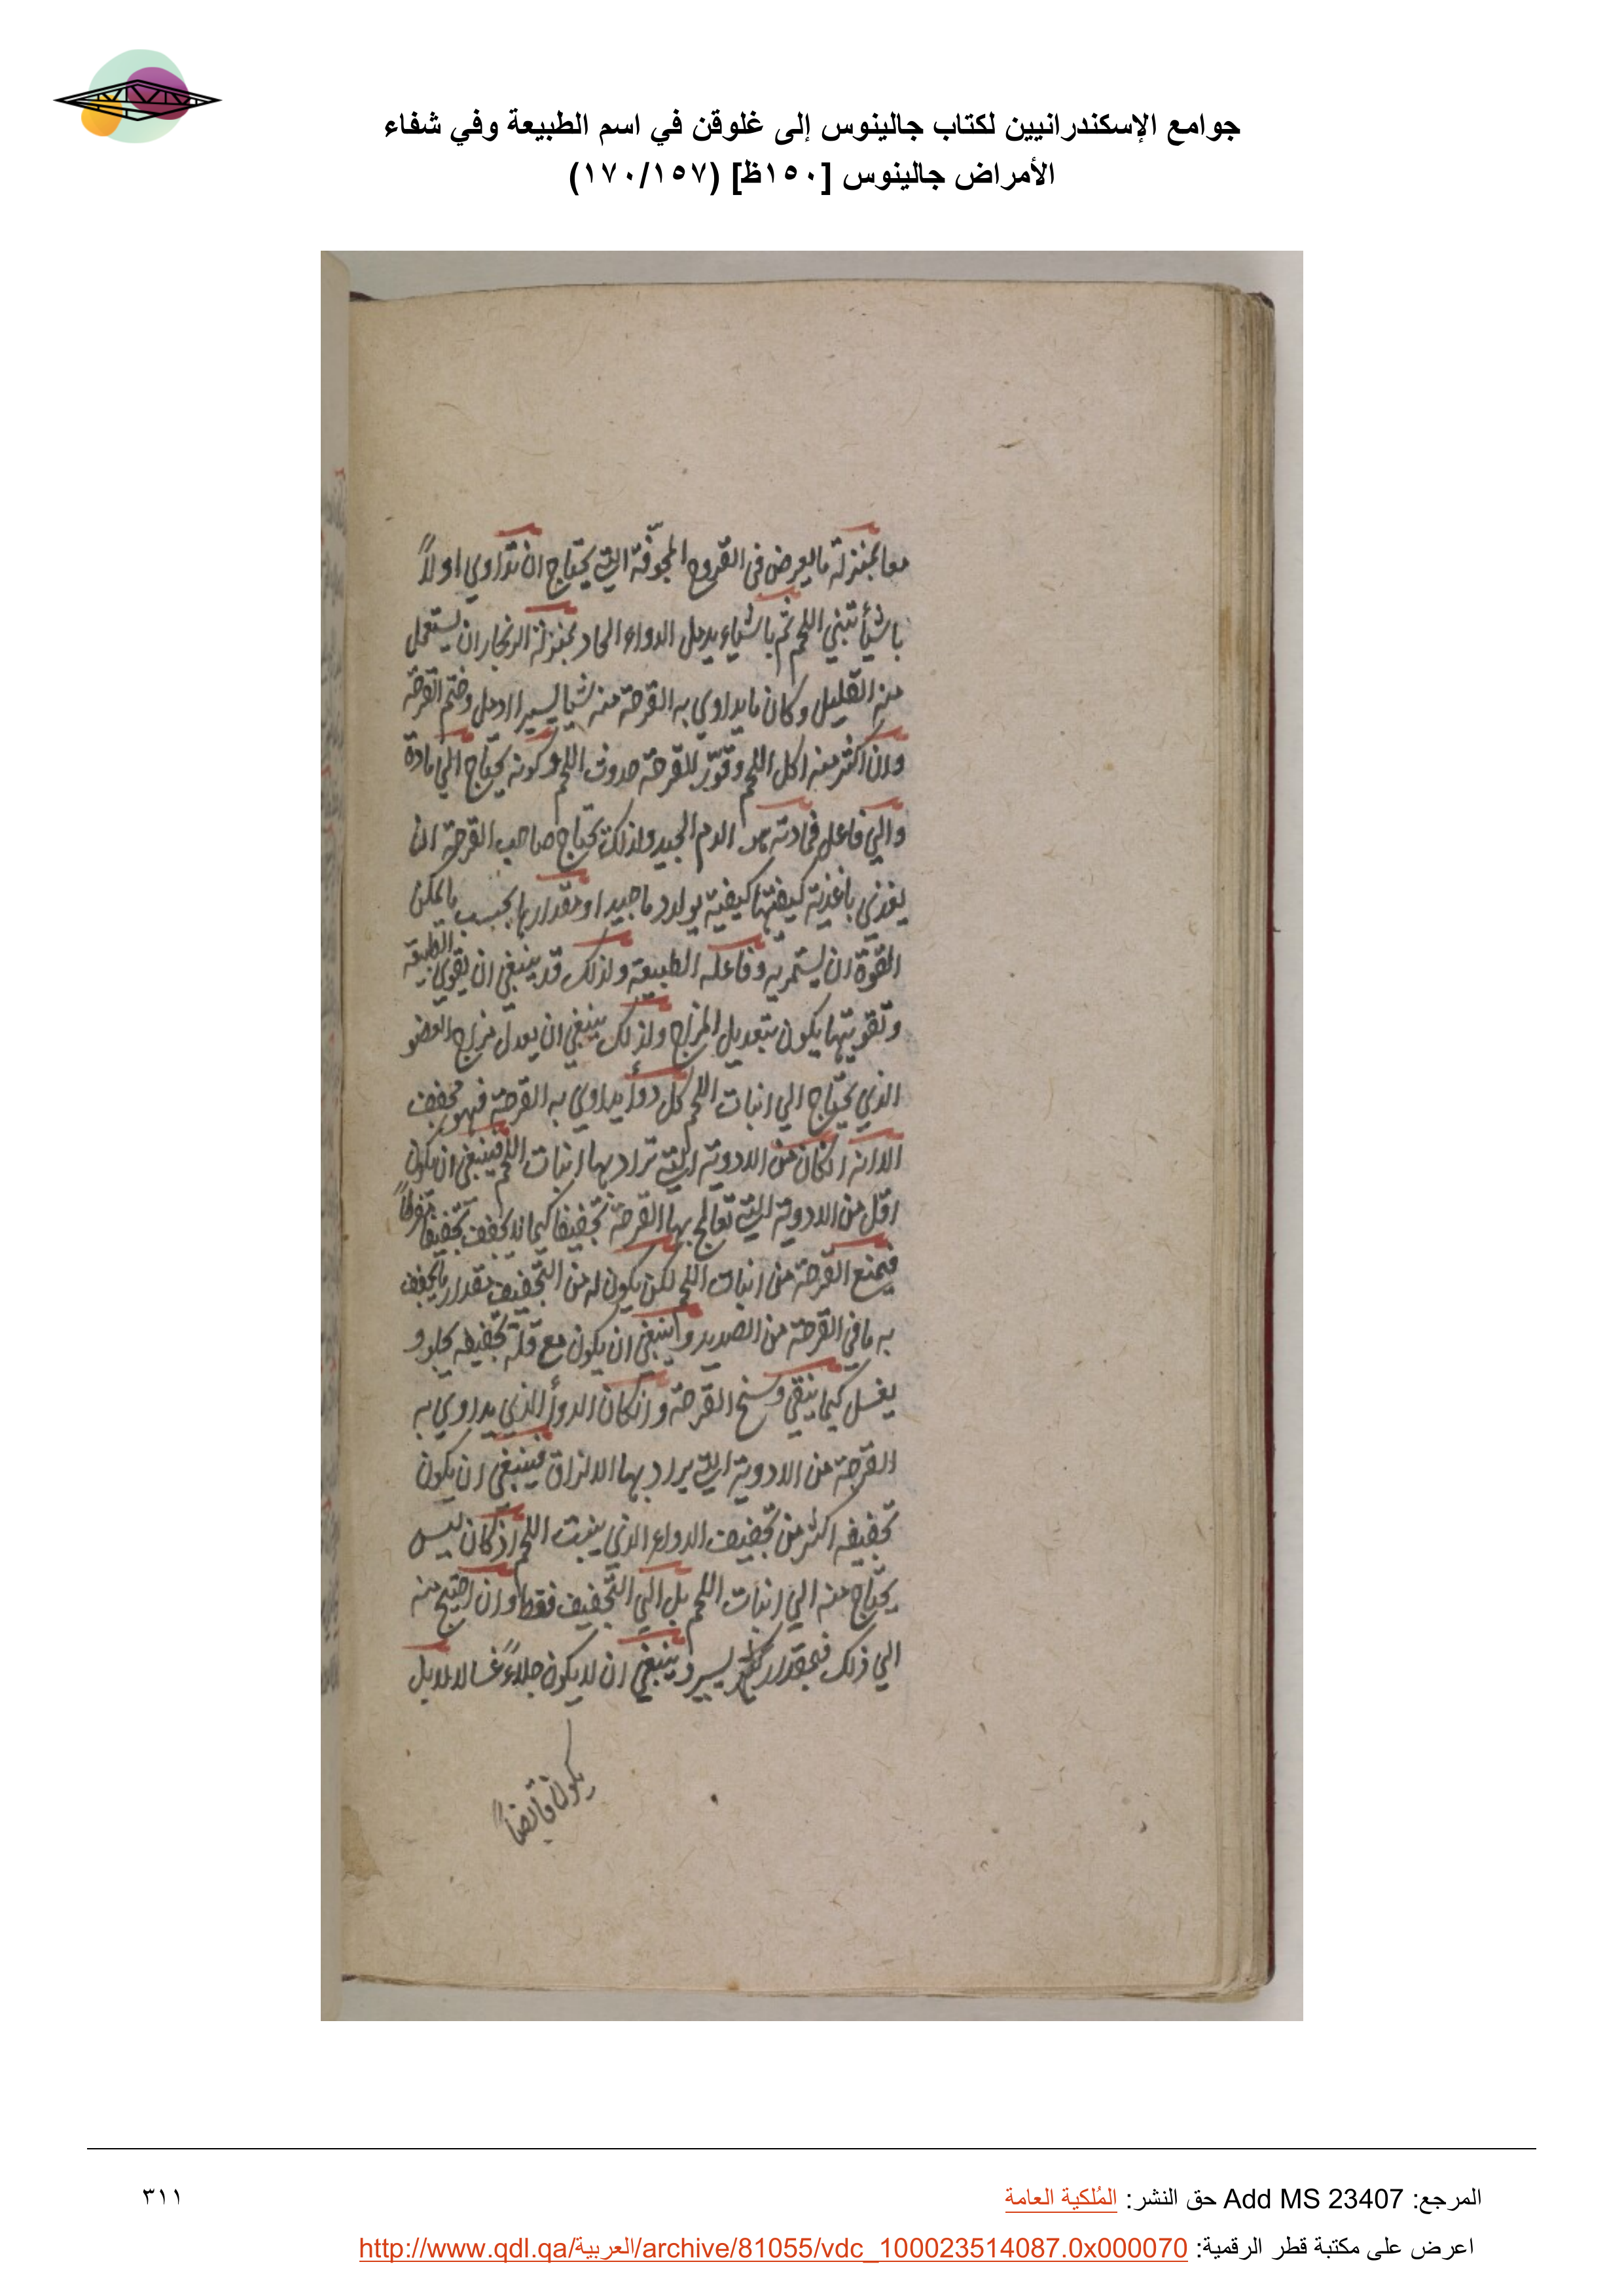 جوامع الإسكندرانيين لكتاب جالينوس إلى غلوقن في اسم الطبيعة وفي شفاء
الأمراض جالينوس [١٥٠ظ] (١٧٠/١٥٧)
معا بمنزلة ما يعرض في القروح المجوفة التي يحتاج ان تداوي اولاً
باشيأ تنبي اللحم ثم باشياء يدمل الدواء الحاد بمنزلة الزنجار ان يستعمل
منه القليل وكان ما يداوي به القرحة منه شيا يسيرا ادمل وختم القرحة
وان اكثر منه اكل اللحم وقوّر للقرحة حدوث اللحم وكونه يحتاج الي مادة
والي فاعل فمادته الدم الجيد ولذلك يحتاج صاحب القرحة ان
يغذي باغذية كيفيتها كيفية يولد دما جيدا ومقدارها بحسب ما يمكن
القوة ان يستمريه وفاعله الطبيعة ولذلك قد ينبغي ان يقوي الطبيعة
وتقويتها يكون بتعديل المزاج ولذلك ينبغي ان يعدل مزاج العضو
الذي يحتاج الي انبات اللحم كل دوأ يداوي به القرحة فهو يجفف
الا انه ان كان من الادوية التي تراد بها انبات اللحم فينبغي ان يكون
اقل من الادوية التي تعالج بها القرحة تجفيفا كيما لا يجفف تجفيفا مفرطاً
فيمنع القرحة من انبات اللحم لكن يكون له من التجفيف مقدار ما يجفف
به ما في القرحة من الصديد وينبغي ان يكون مع قلة تجفيفه يجلو و
يغسل كيما ينقي وسخ القرحة وان كان الدوأ الذي يداوي به
القرحة من الادوية التي يراد بها الالزاق فينبغي ان يكون
تجفيفه اكثر من تجفيف الدواء الذي ينبت اللحم اذ كان ليس
يحتاج منه الي انبات اللحم بل الي التجفيف فقط وان احتيج منه
الي ذلك فبمقدار يسير وينبغي ان لا يكون جلاءً غسالا بل
يكون قابضاً
المرجع: Add MS 23407 حق النشر: المُلكية العامة
٣١١
اعرض على مكتبة قطر الرقمية: http://www.qdl.qa/العربية/archive/81055/vdc_100023514087.0x000070